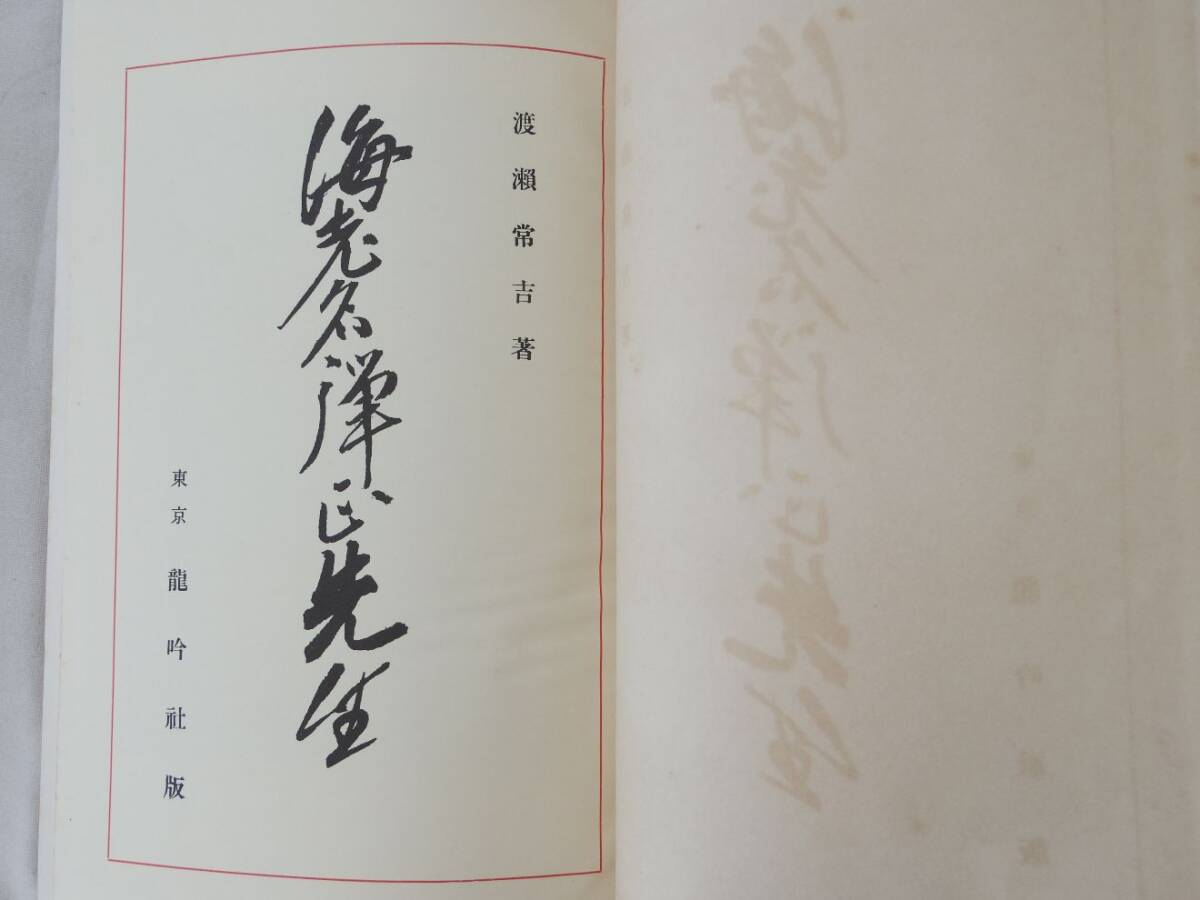 渡瀨常吉著
海老名彈正先生
東京 龍吟社版